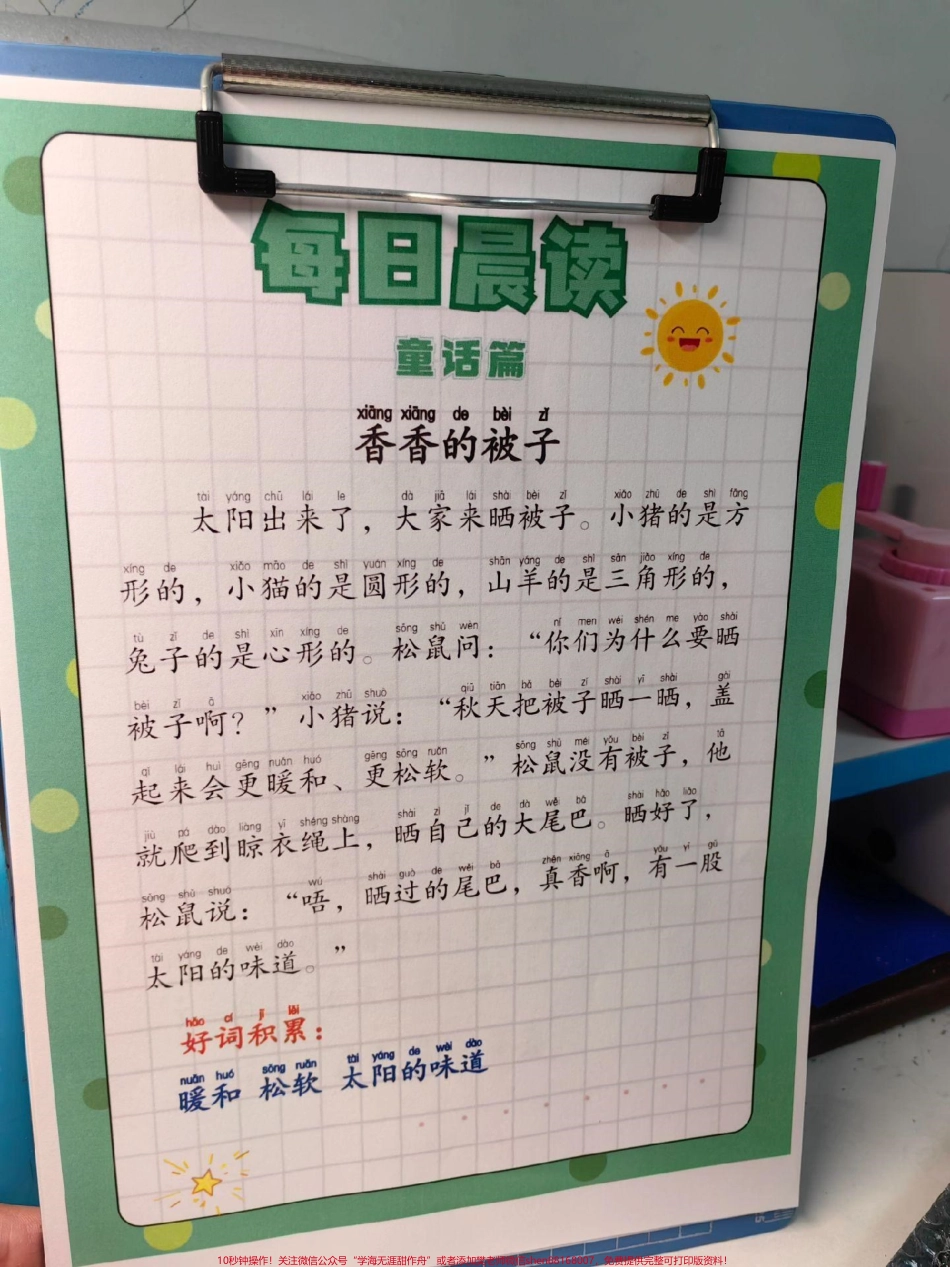 每日晨读
童话篇
xiāng xiāng de bèi zǐ
香香的被子
tài yáng chū lái le dà jiā lái shài bèi zǐ xiǎo zhū de shì fāng
太阳出来了，大家来晒被子。小猪的是方
xíng de xiǎo māo de shì yuán xíng de shān yáng de shì sān jiǎo xíng de
形的，小猫的是圆形的，山羊的是三角形的，
tù zǐ de shì xīn xíng de sōng shǔ wèn nǐ men wèi shén me yào shài
兔子的是心形的。松鼠问：“你们为什么要晒
bèi zǐ ā xiǎo zhū shuō qiū tiān bǎ bèi zǐ shài yī shài gài
被子啊？”小猪说：“秋天把被子晒一晒，盖
qǐ lái huì gèng nuǎn huó gèng sōng ruǎn sōng shǔ méi yǒu bèi zǐ tā
起来会更暖和、更松软。”松鼠没有被子，他
jiù pá dào liàng yī shéng shàng shài zì jǐ de dà wěi bā shài hǎo liǎo
就爬到晾衣绳上，晒自己的大尾巴。晒好了，
sōng shǔ shuō wú shài guò de wěi bā zhēn xiāng ā yǒu yī gǔ
松鼠说：“唔，晒过的尾巴，真香啊，有一股
tài yáng de wèi dào
太阳的味道。”
hǎo cí jī lěi
好词积累：
nuǎn huó sōng ruǎn tài yáng de wèi dào
暖和 松软 太阳的味道
10秒钟操作！关注微信公众号“学海无涯甜作舟”或者添加 免费提供完整可打印版资料！